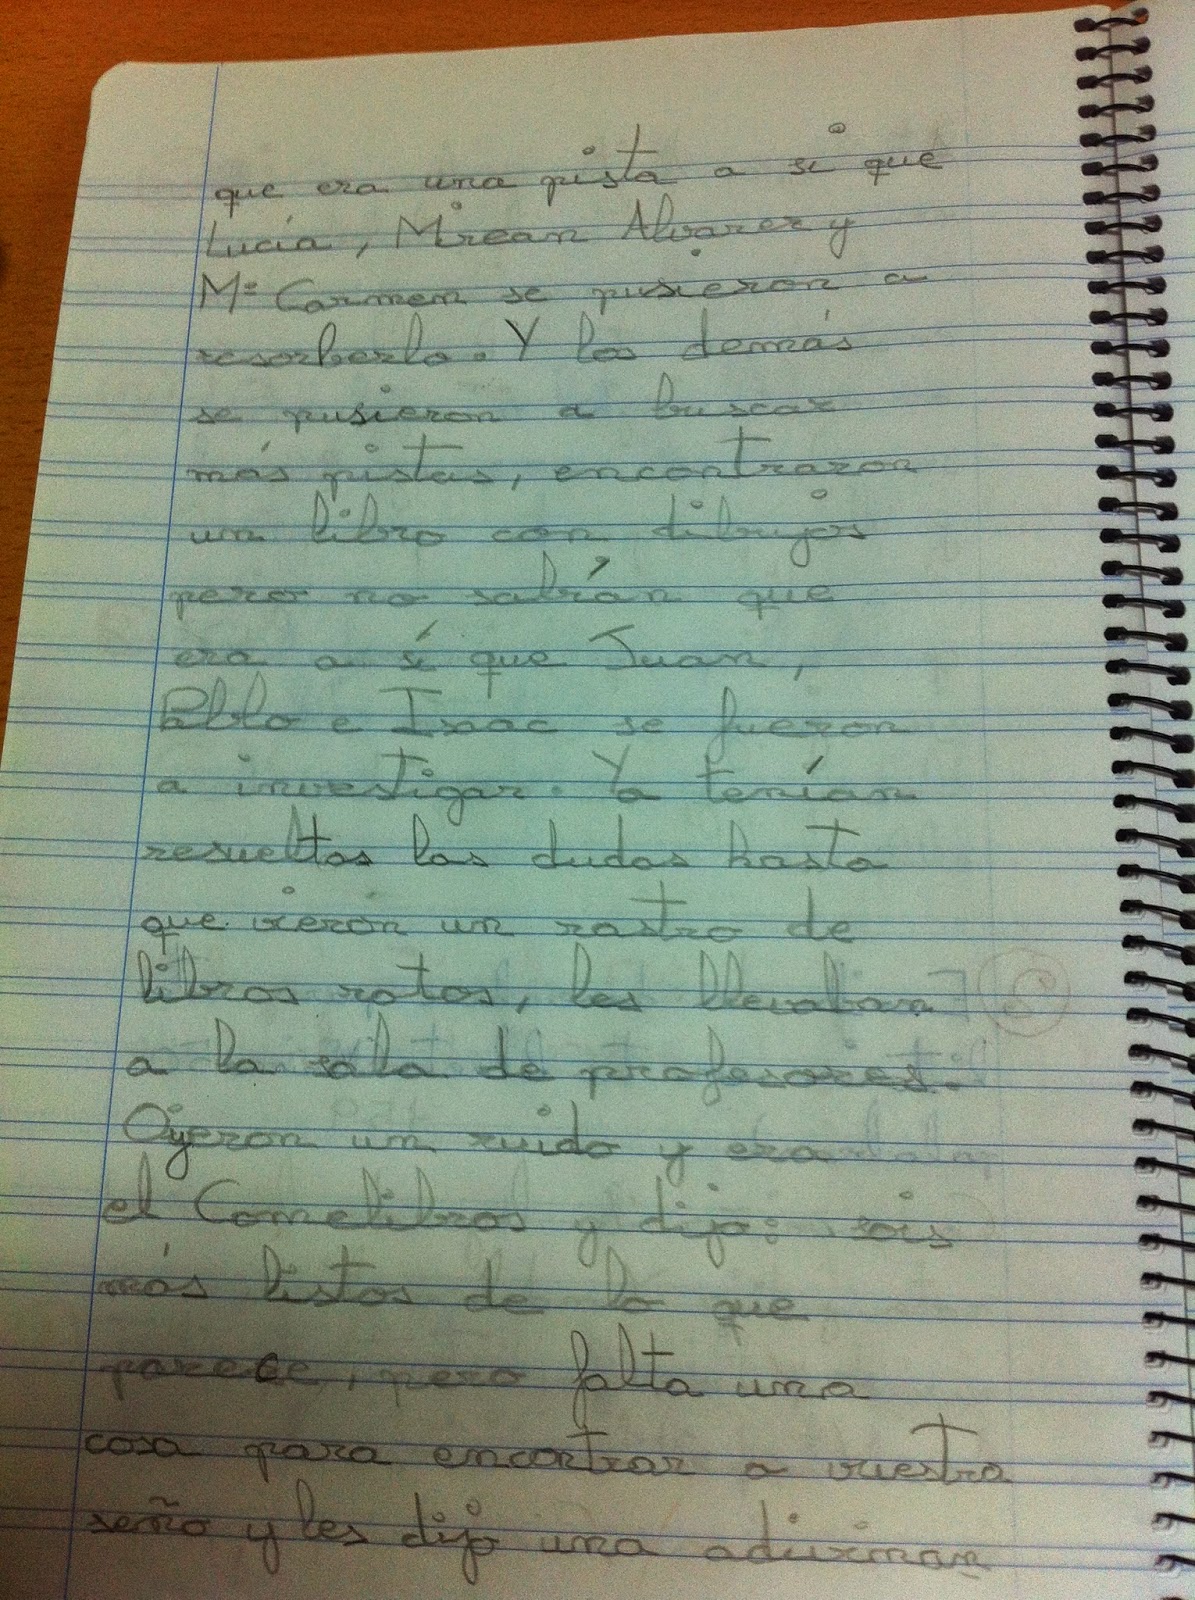 que era una pista a si que
Lucía, Mirean Alvarez y
Mª Carmen se pusieron a
resorberlo. Y los demás
se pusieron a buscar
más pistas, encontraron
un libro con dibujos
pero no sabían que
era a sí que Juan,
Pablo e Isaac se fueron
a investigar. Ya tenían
resueltas las dudas hasta
que vieron un rastro de
libros rotos, les llevaban
a la sala de profesores.
Oyeron un ruido y era
el Comelibros y dijo: sois
más listos de lo que
parece, pero falta una
cosa para encontrar a vuestra
seño y les dijo una adivinan